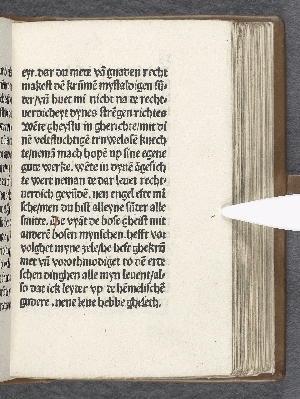 eyr. dar du mete vā gnaden recht
makest dē krūmē myssdadigen sū
der/vn̄ huet mi nicht na de rechte
verdicheyt dynes strēgen richtes
Wēte gheystu in gherichte/mit di
nē velefluchtigē truwelose knech
te/nemā mach hopē up sine egene
gute werke. wēte in dyne āgesich
te wert neman de dar levet recht
verdich ghevūdē. nen engel este mī
sche/men du bist alleyne sūder alle
smitte. De vyāt de bose gheist mit
anderē bosen mynschen hefft vor
volghet myne zele/he heft ghekrū
met vn̄ vorothmodiget to dē erte
schen dinghen alle myn levent/al
so dat ick leyder up de hēmelischē
gudere, nene leve hebbe ghelech.